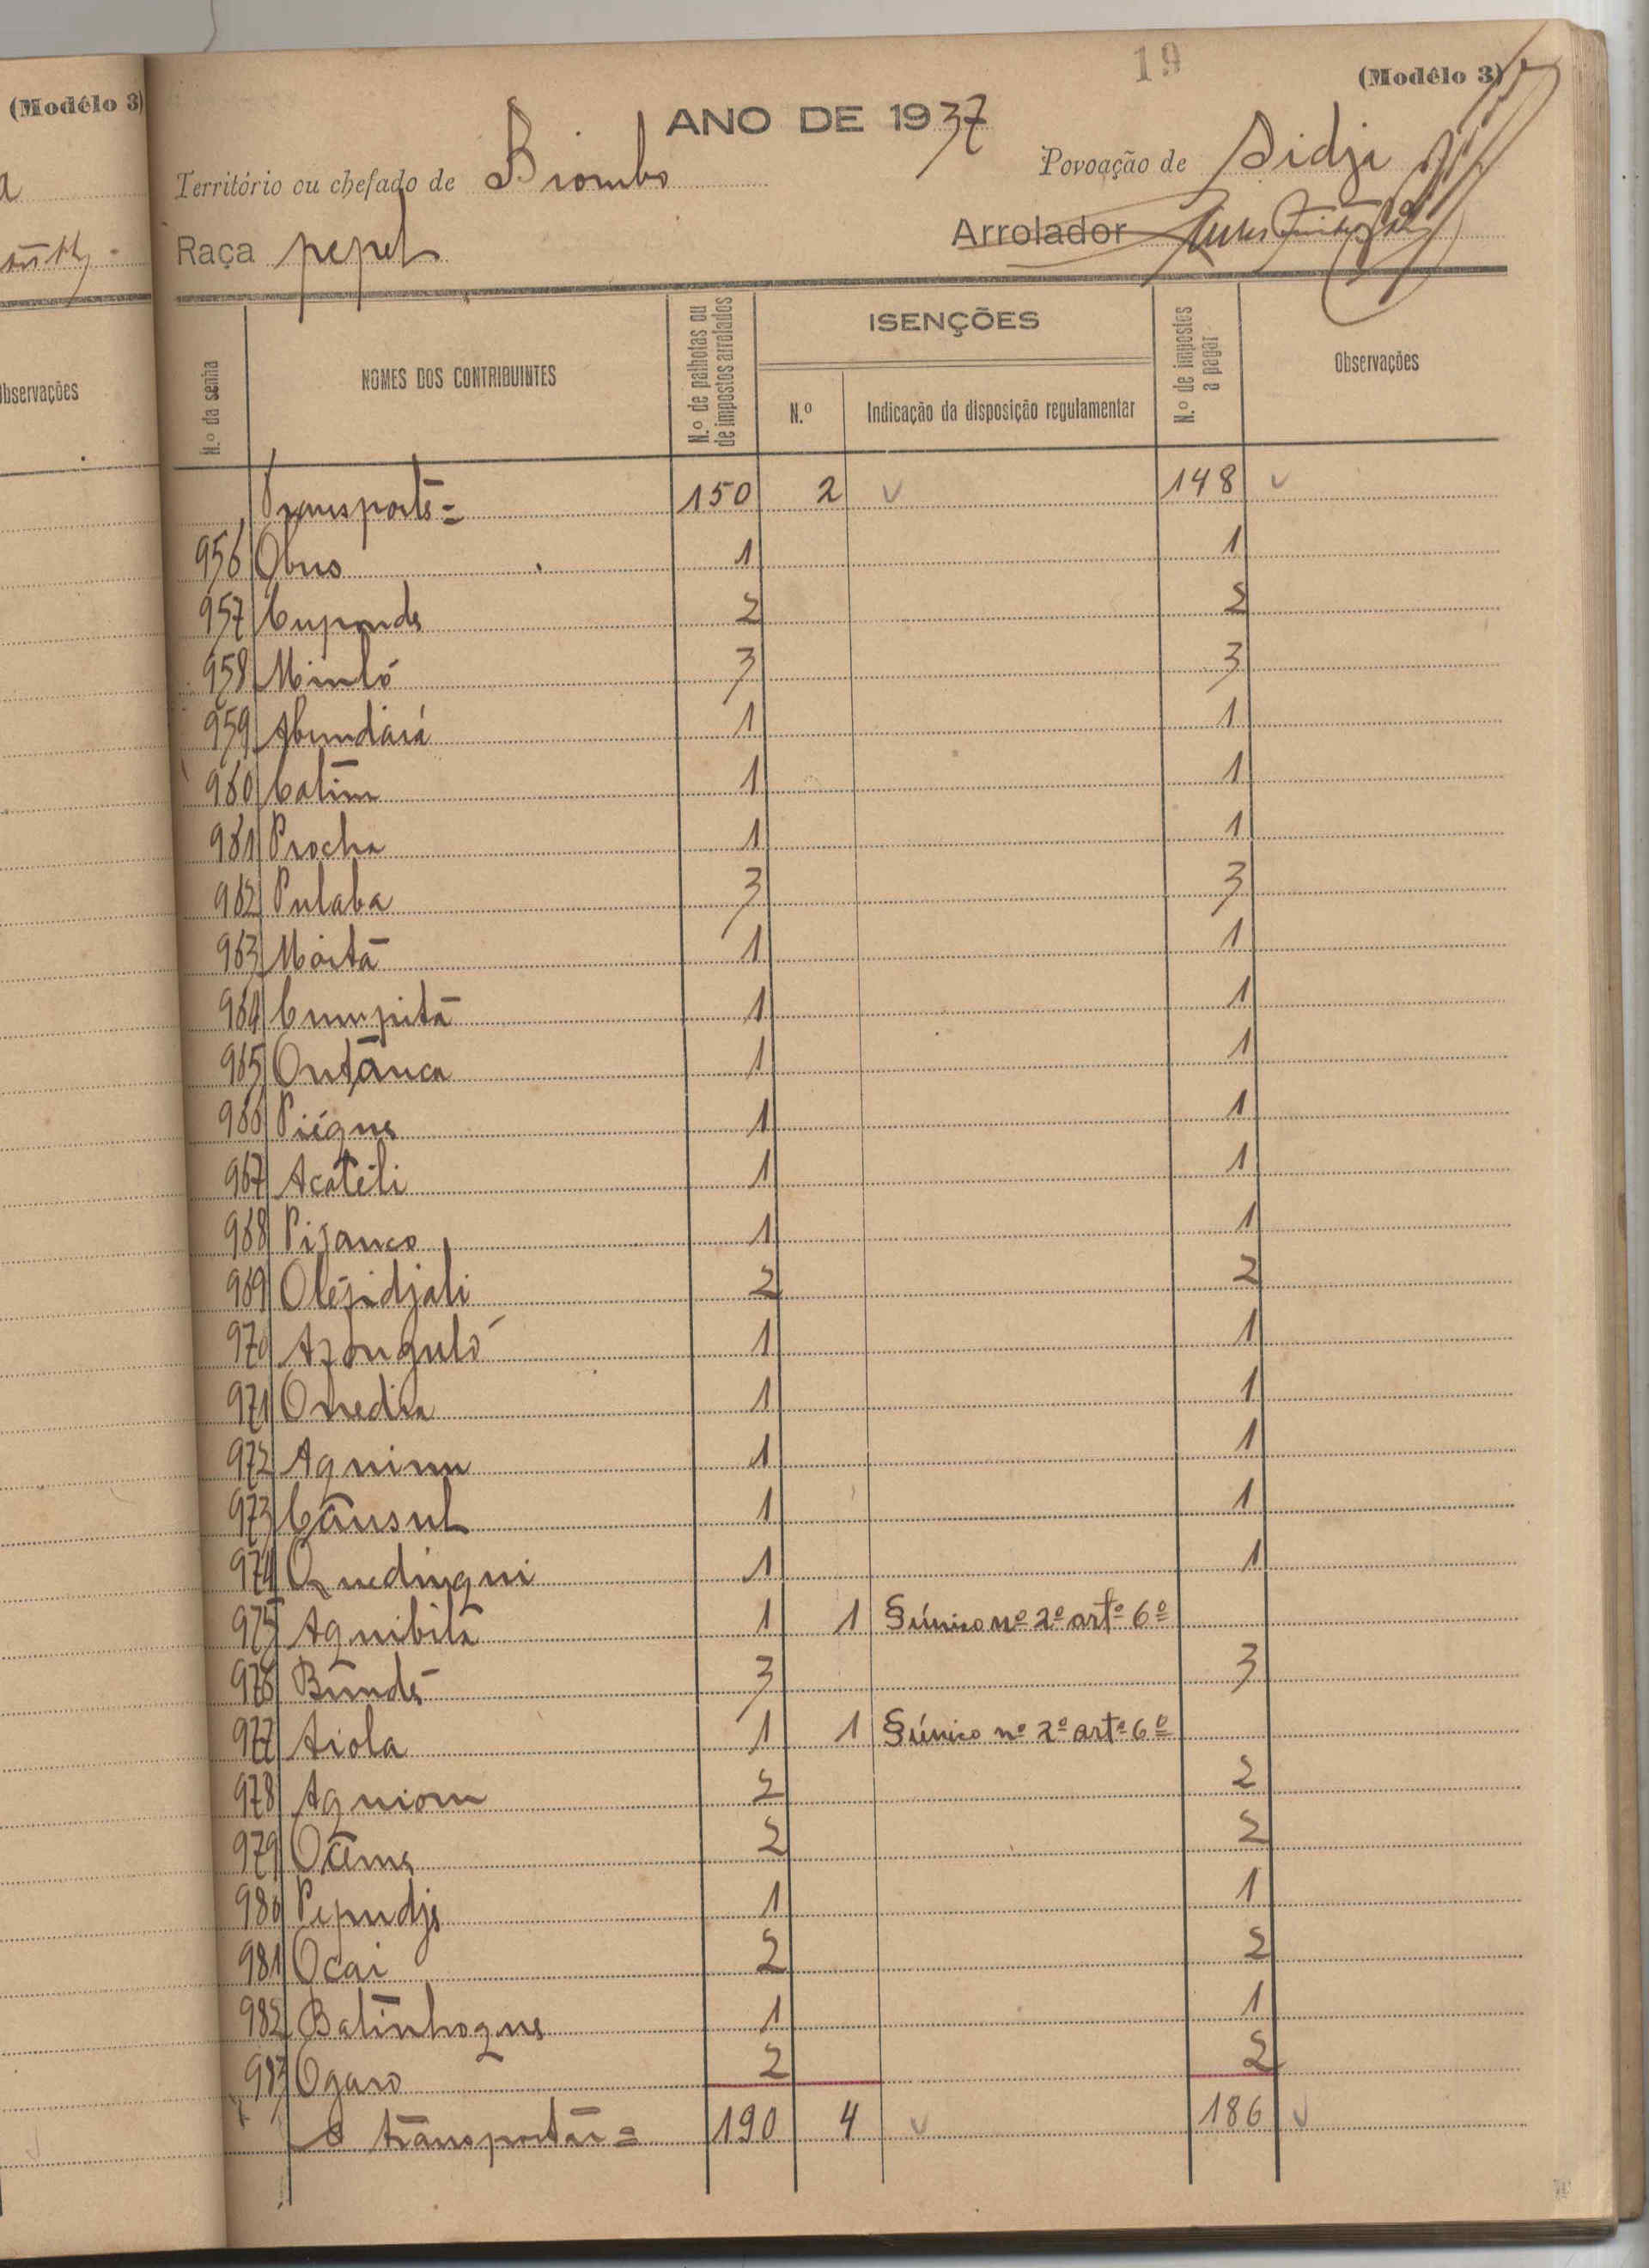 19
(Modêlo 3)
(Modêlo 3)
ANO DE 1937
Território ou chefado de Biombo Povoação de Sidja
Raça pepel Arrolador
Observações
N.º da senha NOMES DOS CONTRIBUINTES N.º de palhotas ou de impostos arrolados ISENÇÕES N.º de impostos a pagar Observações
N.º Indicação da disposição regulamentar
Transporte = 150 2 148
956 Obuo 1 1
957 Cuponde 2 2
958 Minló 3 3
959 Abundará 1 1
960 Catim 1 1
961 Procha 1 1
962 Pulaba 3 3
963 Moita 1 1
964 Cumpita 1 1
965 Ontanca 1 1
966 Piégue 1 1
967 Acateli 1 1
968 Pisanco 1 1
969 Olégidjali 2 2
970 Azonguló 1 1
971 Onedia 1 1
972 Aquinu 1 1
973 Cansul 1 1
974 Quedingui 1 1
975 Aquibila 1 1 § único nº 2º artº 6º
976 Bundé 3 3
977 Aiola 1 1 § único nº 2º artº 6º
978 Aquiom 2 2
979 Ocame 2 2
980 Pepudje 1 1
981 Ocai 2 2
982 Batinhoque 1 1
983 Ogaro 2 2
A transportar = 190 4 186